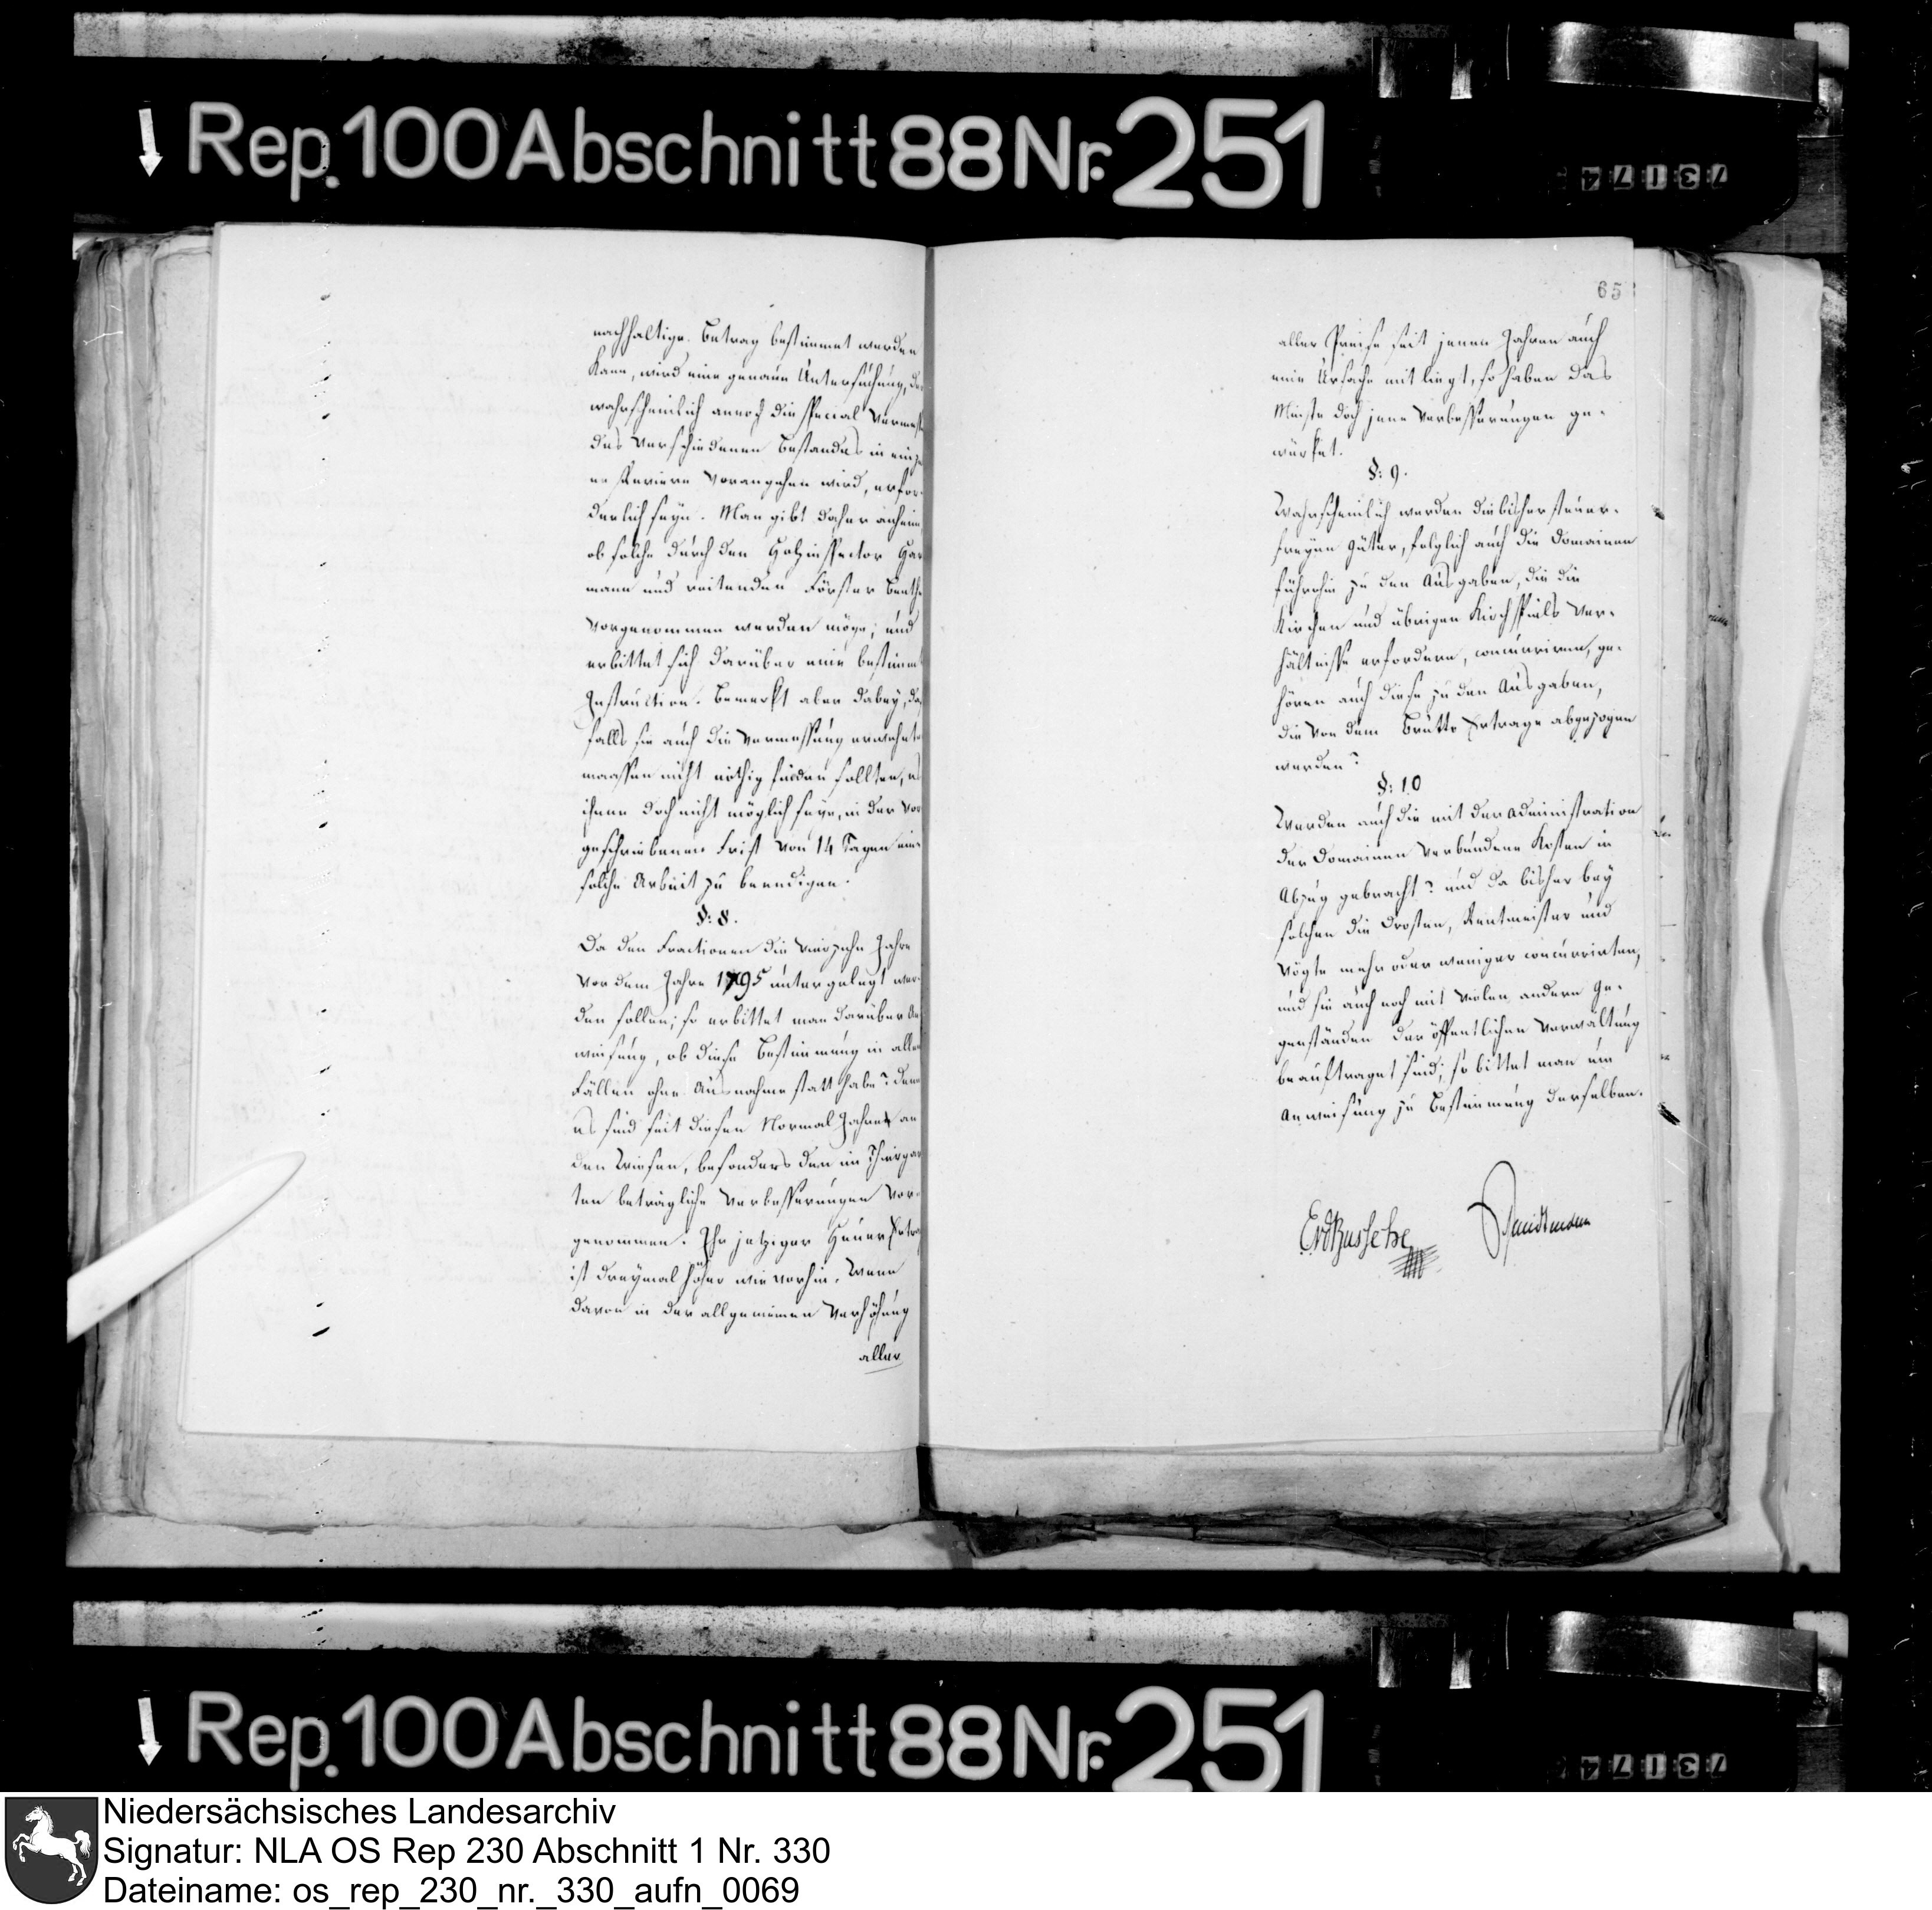 Rep. 100 Abschnitt 88 Nr. 251
73174
nachhaltige Betrag bestimmet werden
Kann, wird eine genaue Untersuchung, der
wahrscheinlich annoch die special Vermess
des verschiedenen Bestandes in einze
ne Reviere vorangehen wird, erfor-
derlich seyn. Man gibt daher anheim
ob solche durch den Holzinspector Har
mann und reitenden Förster Benthe
vorgenommen werden möge; und
erbittet sich darüber eine bestimmt
Instruction. Bemerkt aber dabey, das
falls sie auch die Vermessung erwehnte
maassen nicht nöthig finden sollten, es
ihnen doch nicht möglich seye, in der vor
geschriebenen Frist von 14 Tagen eine
solche Arbeit zu beendigen.
§: 8.
Da den Fractionen die vierzehn Jahre
vor dem Jahre 1795 untergelegt wer-
den sollen; so erbittet man darüber An
weisung, ob diese Bestimmung in allen
Fällen ohne Ausnahme statt habe? denn
es sind seit diesen Normal Jahren an
den Wiesen, besonders den im Thiergar
ten beträgliche Verbesserungen vor-
genommen. Ihr jetziger Heuer Ertrag
ist dreymal höher wie vorhin. Wenn
davon in der allgemeinen Verhöhung
aller
65
aller Preise seit jenen Jahren auch
eine Ursache mit liegt, so haben das
Meiste doch jene Verbesserungen ge-
würket.
§: 9.
Wahrscheinlich werden die bisher steuer-
freyen Güter, folglich auch die Domainen
führohin zu den Ausgaben, die die
Kirchen und übrigen Kirchspiels Ver-
hältnisse erfordern, concurriren, ge-
hören auch diese zu den Ausgaben,
die von dem Brutto Ertrage abgezogen
werden?
§: 10
Werden auch die mit der Administration
der Domainen verbundene Kosten in
Abzug gebracht? und da bisher bey
solchen die Drosten, Rentmeister und
Vögte mehr oder weniger concurrirten,
und sie auch noch mit vielen andern Ge-
genständen der öffentlichen Verwaltung
beauftraget sind; so bittet man um
Anweisung zu Bestimmung derselben.
EvdBussche
Rep. 100 Abschnitt 88 Nr. 251
73174
Niedersächsisches Landesarchiv
Signatur: NLA OS Rep 230 Abschnitt 1 Nr. 330
Dateiname: os_rep_230_nr._330_aufn_0069